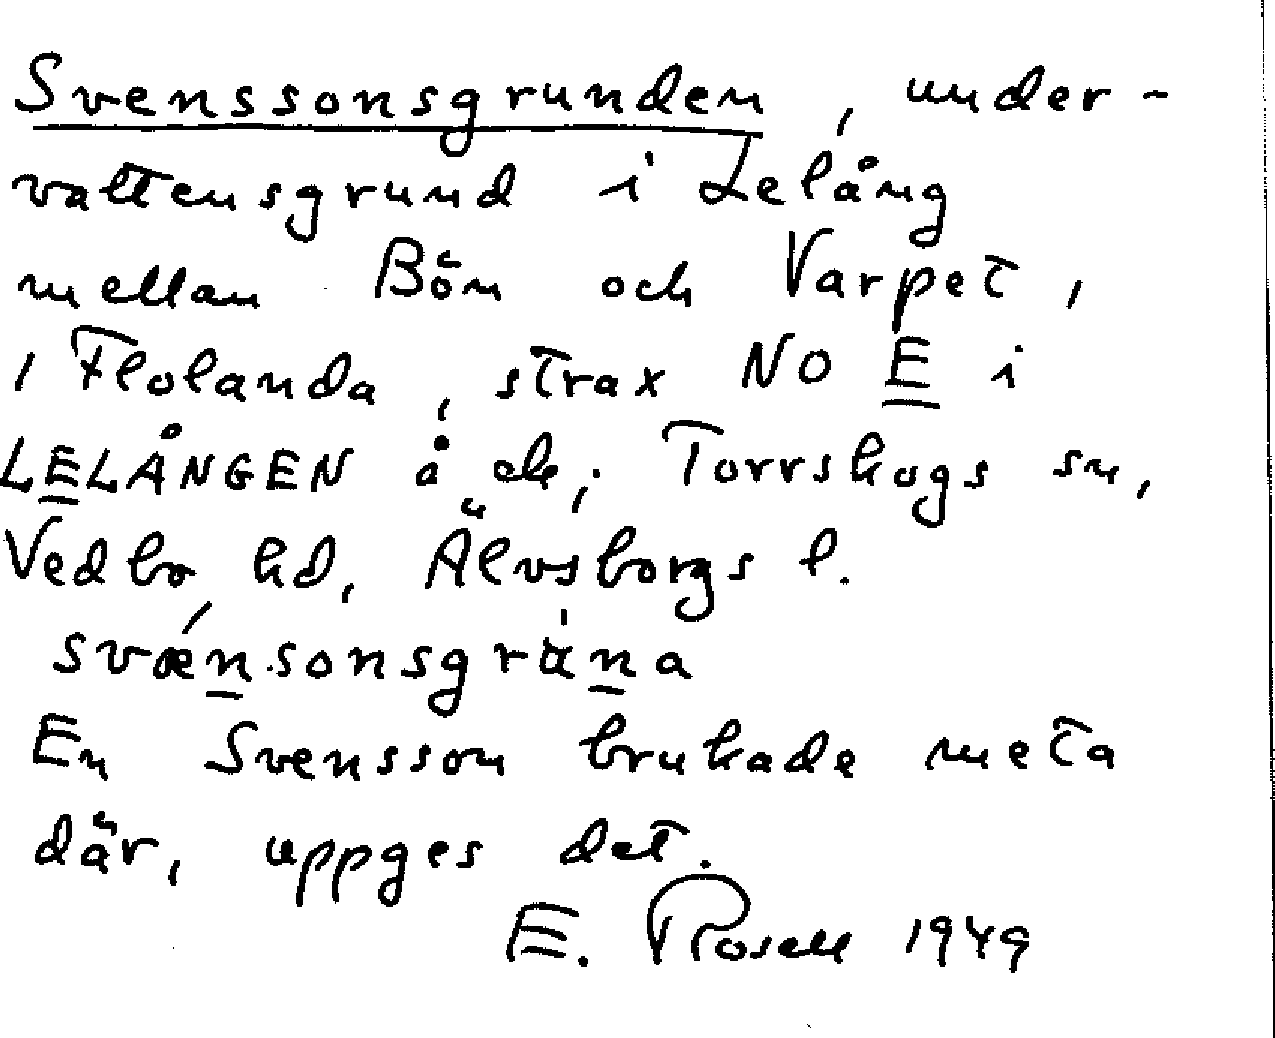 Svenssonsgrunden, under-
vattensgrund i Lelång
mellan Bön och Varpet,
i Flolanda, strax NO E i
LELÅNGEN å ek; Torrskogs sn,
Vedbo hd, Älvsborgs l.
svǽnsonsgrüna
En Svensson brukade meta
där, uppges det.
E. Rosell 1949